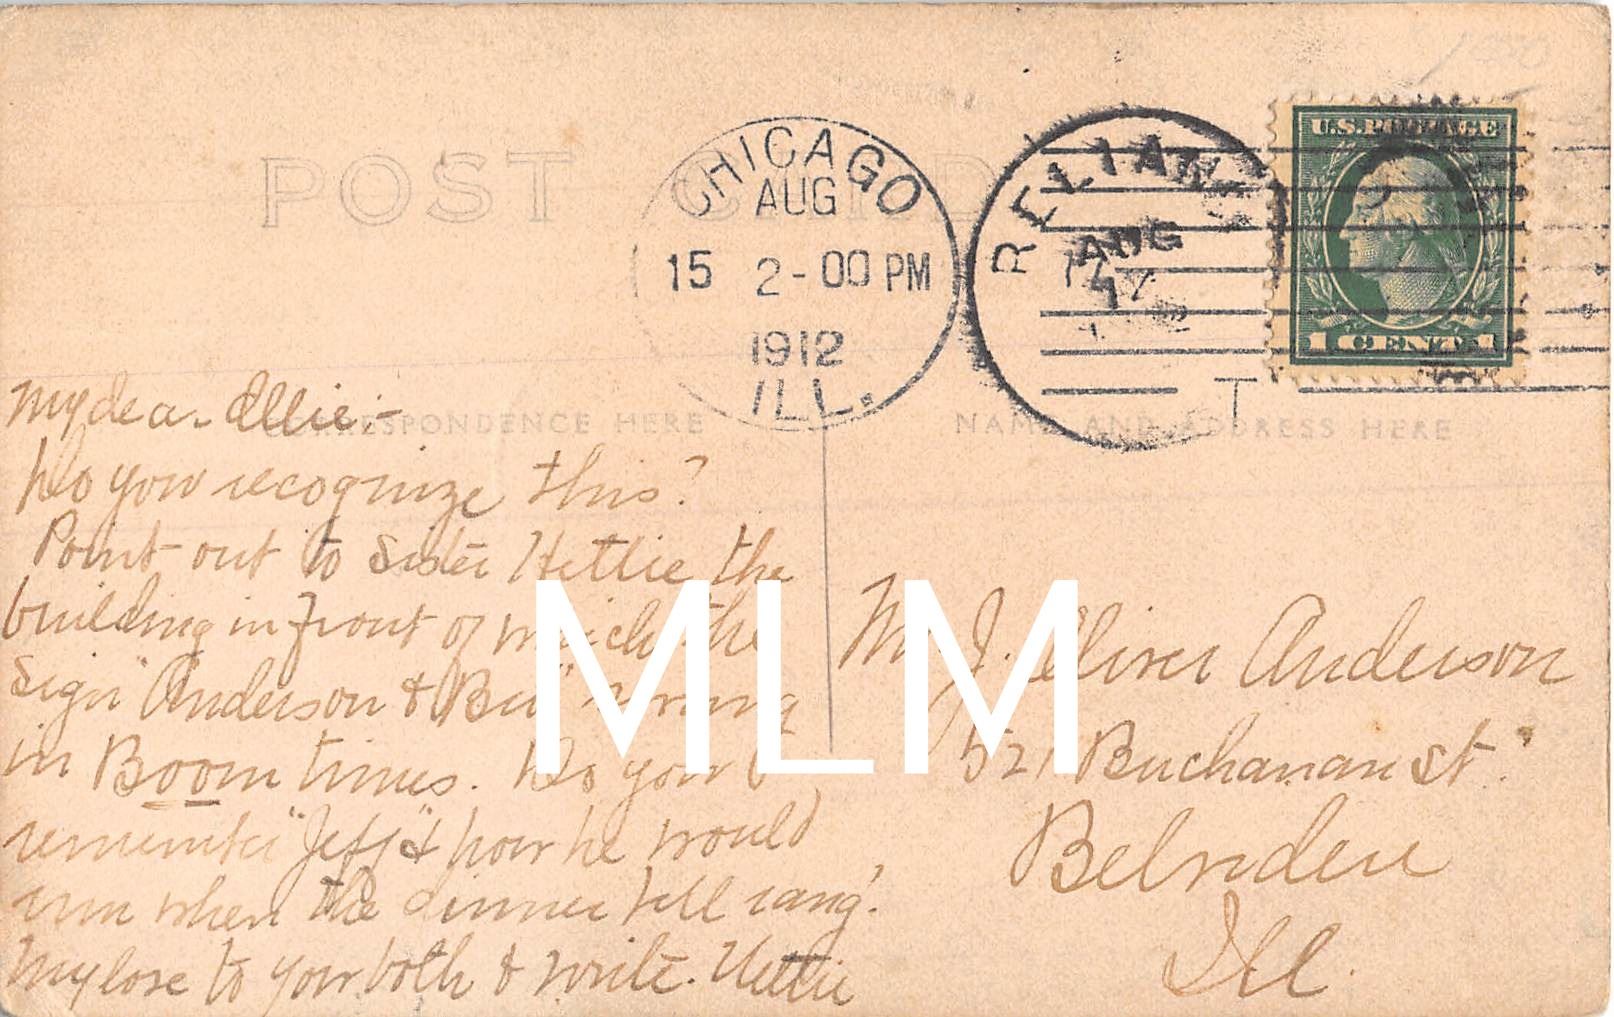 POST CARD
CHICAGO
AUG
15 2-00 PM
1912
ILL.
RELIAN
AUG
U.S. POSTAGE
1 CENT 1
T
CORRESPONDENCE HERE
NAME AND ADDRESS HERE
My dear Ollie:-
Do you recognize this?
Point out to Sister Hettie the
building in front of which the
sign "Anderson & Bu" swung
in Boom times. Do you
remember "Jeff" & how he would
run when the dinner bell rang?
My love to you both & write. Nettie
Mr J. Oliver Anderson
521 Buchanan St.
Belvidere
Ill.
MLM